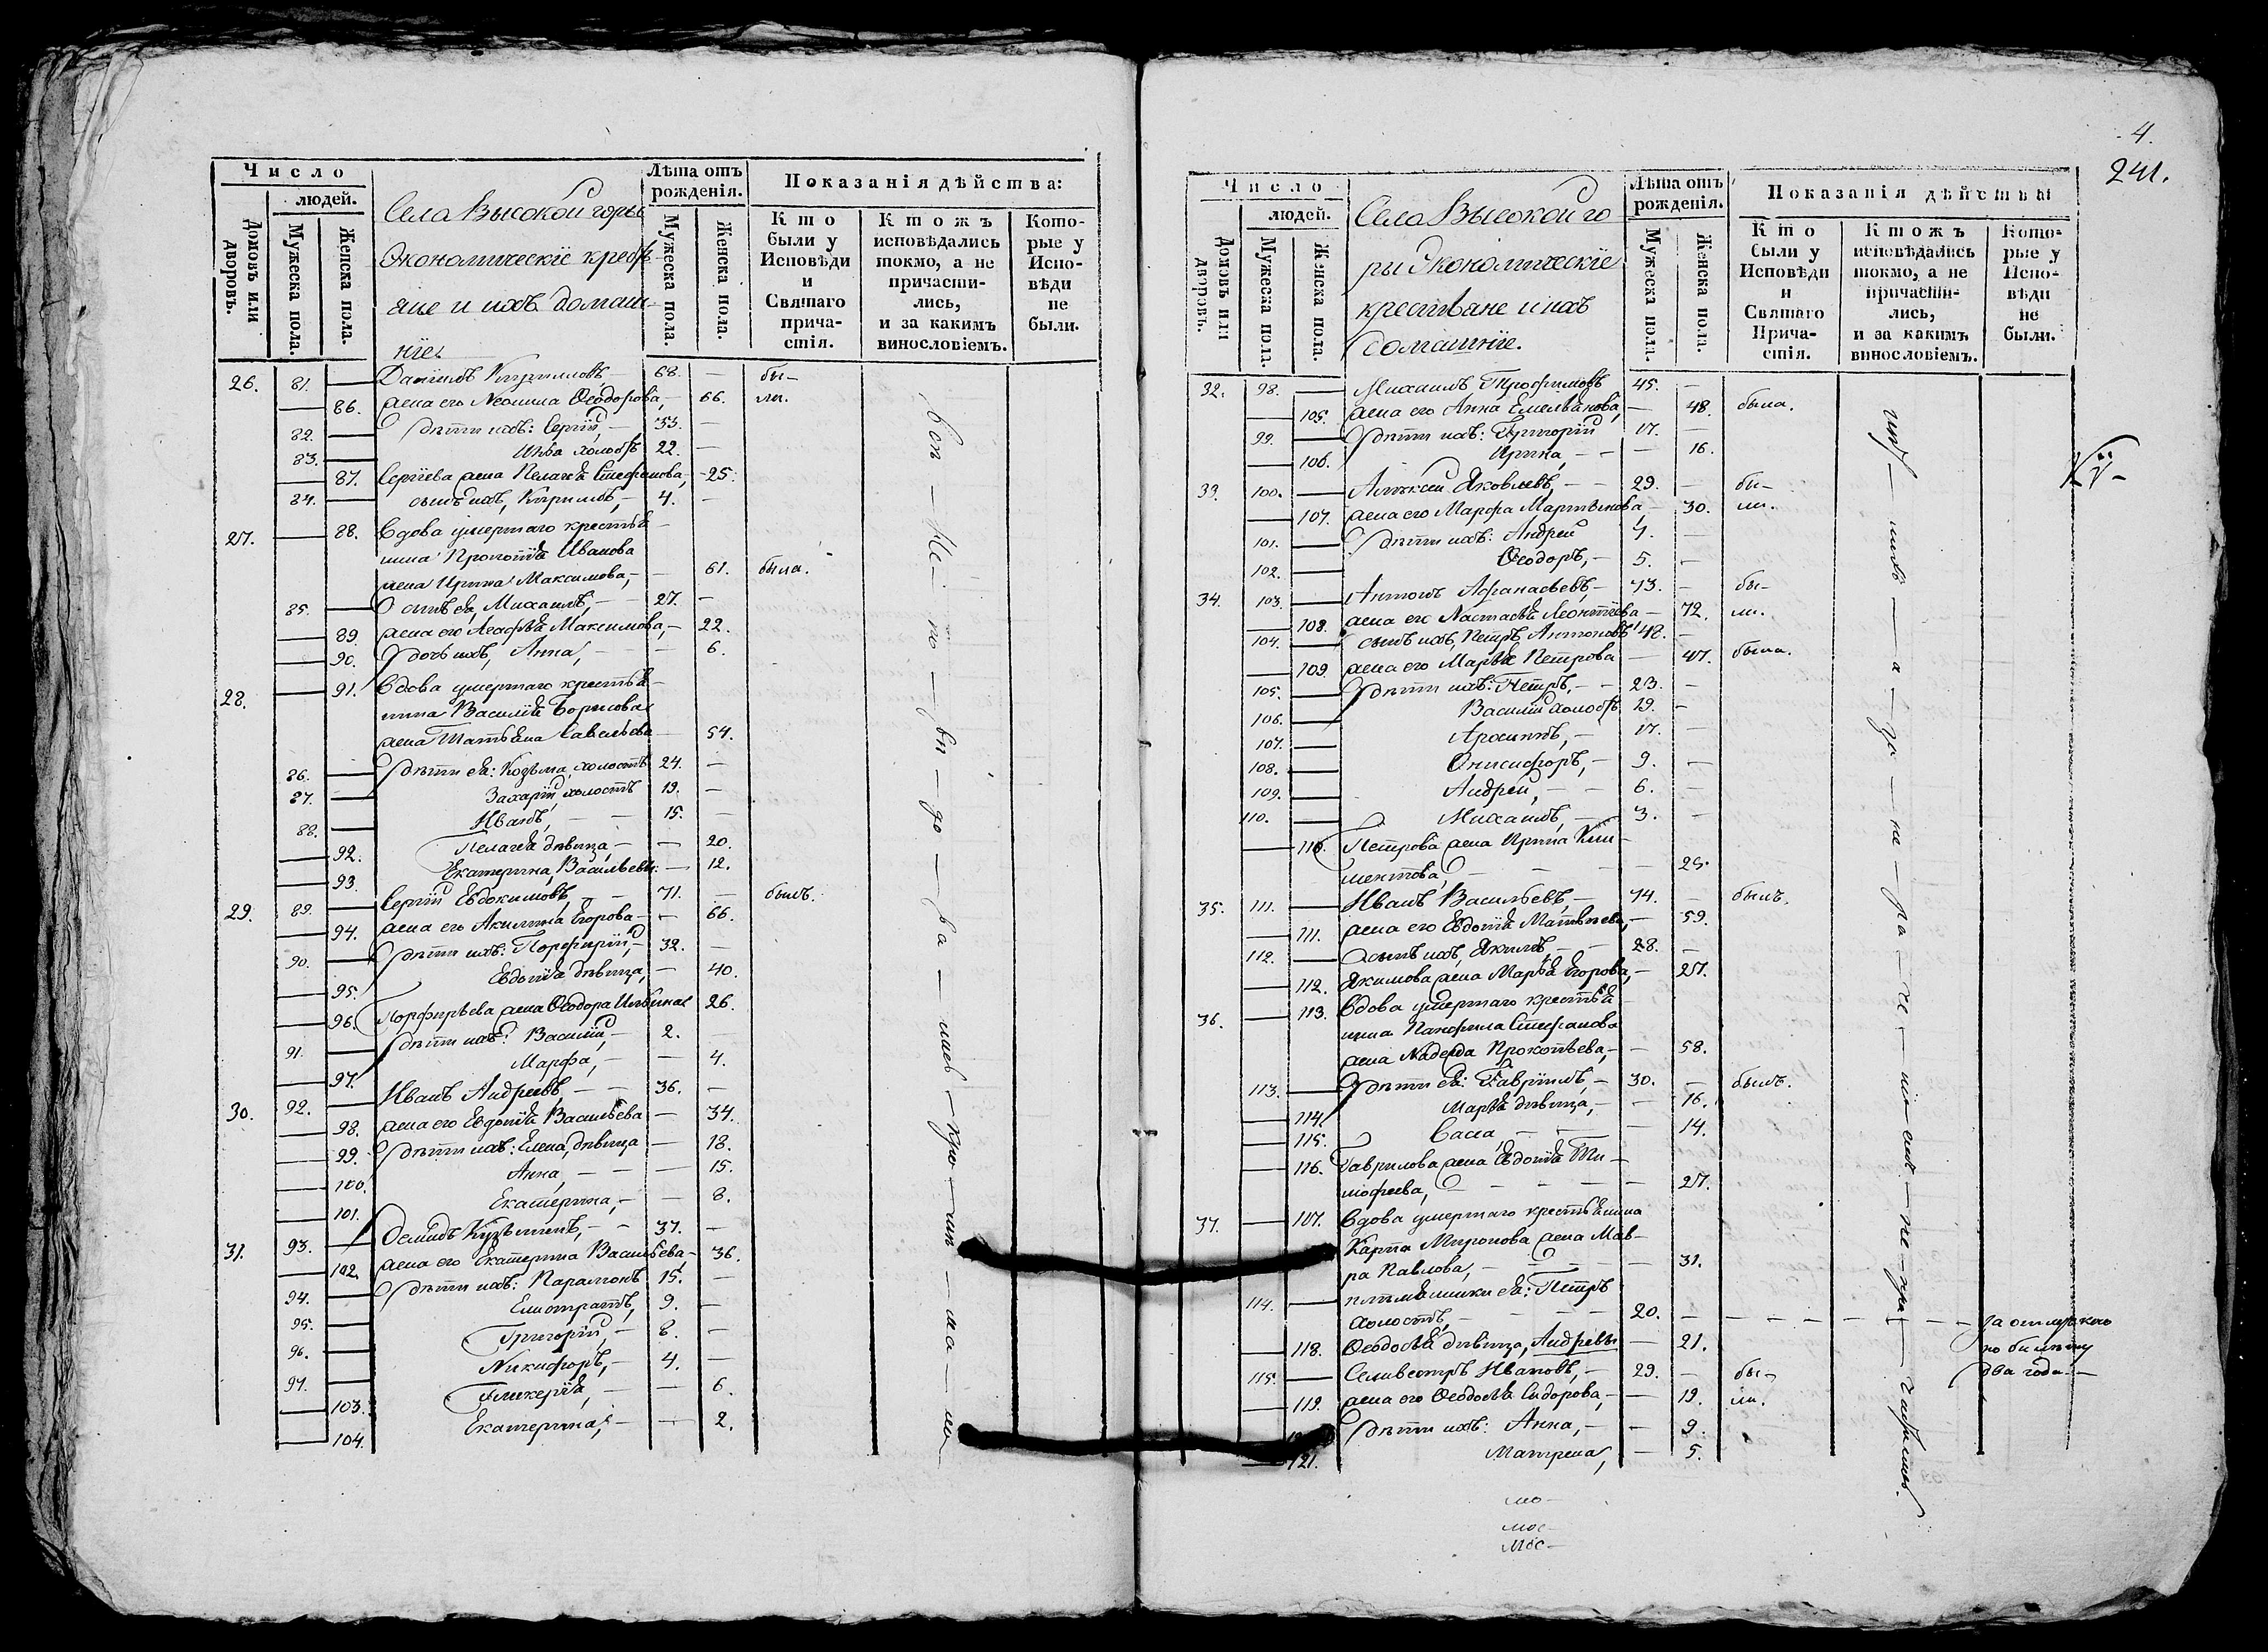 Число
людей.
Домовъ или дворовъ.
Мужеска пола.
Женска пола.
Села Высокой горы
Экономическiе крестья
яне и ихъ домаш-
нiе.
Лѣта отъ рожденiя.
Мужеска пола.
Женска пола.
Показанiя дѣйства:
Кто были у Исповѣди и Святаго причастiя.
Ктожъ исповѣдались токмо, а не причастились, и за какимъ винословiемъ.
Которые у Исповѣди не были.
26. 81. Данiилъ Кирилловъ 68. бы-
86. жена его Неонила Ѳеодорова, 66. ли.
82. дѣти ихъ: Сергiй, 33.
83. Илья холостъ 22.
87. Сергiева жена Пелагея Стефанова, 25.
84. сынъ ихъ, Кирилъ, 4.
27. 88. Вдова умершаго крестья-
нина Прокопiя Иванова
жена Ирина Максимова, 61. была.
85. сынъ ея, Михаилъ, 27.
89. жена его Агафья Максимова, 22.
90. дочь ихъ, Анна, 6.
28. 91. Вдова умершаго крестья-
нина Василiя Борисова
жена Татьяна Савельева 54.
86. дѣти ея: Козьма, холостъ 24.
87. Захарiй, холостъ 19.
88. Иванъ, 15.
92. Пелагея дѣвица, 20.
93. Екатерина, Васильевы 12.
29. 89. Сергiй Евдокимовъ, 71. былъ.
94. жена его Акилина Егорова 66.
90. дѣти ихъ: Порфирiй, 32.
95. Евдокiя дѣвица, 40.
96. Порфирьева жена Ѳеодора Ильина 26.
91. дѣти ихъ: Василiй, 2.
97. Марфа, 4.
30. 92. Иванъ Андреевъ, 36.
98. жена его Евдокiя Васильева 34.
99. дѣти ихъ: Елена, дѣвица 18.
100. Анна, 15.
101. Екатерина, 8.
31. 93. Демидъ Кузьминъ, 37.
102. жена его Екатерина Васильева, 36.
94. дѣти ихъ: Парамонъ 15.
95. Елистратъ, 9.
96. Григорiй, 8.
97. Никифоръ, 4.
103. Гликерiя, 6.
104. Екатерина, 2.
4.
241.
Число
людей.
Домовъ или дворовъ.
Мужеска пола.
Женска пола.
Села Высокой го
ры Экономическiе
крестьяне и ихъ
домашнiе.
Лѣта отъ рожденiя.
Мужеска пола.
Женска пола.
Показанiя дѣйства
Кто были у Исповѣди и Святаго Причастiя.
Ктожъ исповѣдались токмо, а не причастились, и за какимъ винословiемъ.
Которые у Исповѣди не были.
32. 98. Михаилъ Трофимовъ 45.
105. жена его Анна Емельянова, 48. была.
99. дѣти ихъ: Григорiй 17.
106. Ирина, 16.
33. 100. Алексѣй Яковлевъ, 29. бы-
107. жена его Марфа Мартынова 30. ли.
101. дѣти ихъ: Андрей 7.
102. Ѳеодоръ, 5.
34. 103. Антонъ Афанасьевъ, 73. бы-
108. жена его Настасья Леонтiева 72. ли.
104. сынъ ихъ, Петръ Антоновъ 48.
109. жена его Марья Петрова 47. была.
105. дѣти ихъ: Петръ, 23.
106. Василiй холостъ 19.
107. Архипъ, 17.
108. Онисифоръ, 9.
109. Андрей, 6.
110. Михаилъ, 3.
110. Петрова жена Ирина Кли-
ментова, 25.
35. 111. Иванъ Васильевъ, 74. былъ.
111. жена его Евдокiя Матвѣева, 59.
112. сынъ ихъ, Якимъ 28.
112. Якимова жена Марья Егорова, 27.
36. 113. Вдова умершаго крестья-
нина Панфила Стефанова
жена Надежда Прокопьева, 58.
113. дѣти ея: Гаврiилъ, 30. былъ.
114. Марья дѣвица, 16.
115. Васса, 14.
116. Гаврилова жена Евдокiя Ти-
мофеева, 27.
37. 107. Вдова умершаго крестьянина
Карпа Миронова жена Мав-
ра Павлова, 31.
114. племянники ея: Петръ
холостъ, 20. за отлучкою
118. Ѳеодосья дѣвица, Андреевы 21. по билету
115. Селивестръ Ивановъ, 29. бы- два года.
119. жена его Ѳеодосья Сидорова, 19. ли.
дѣти ихъ: Анна, 9.
121. Матрена, 5.
мо-
мос-
мос-